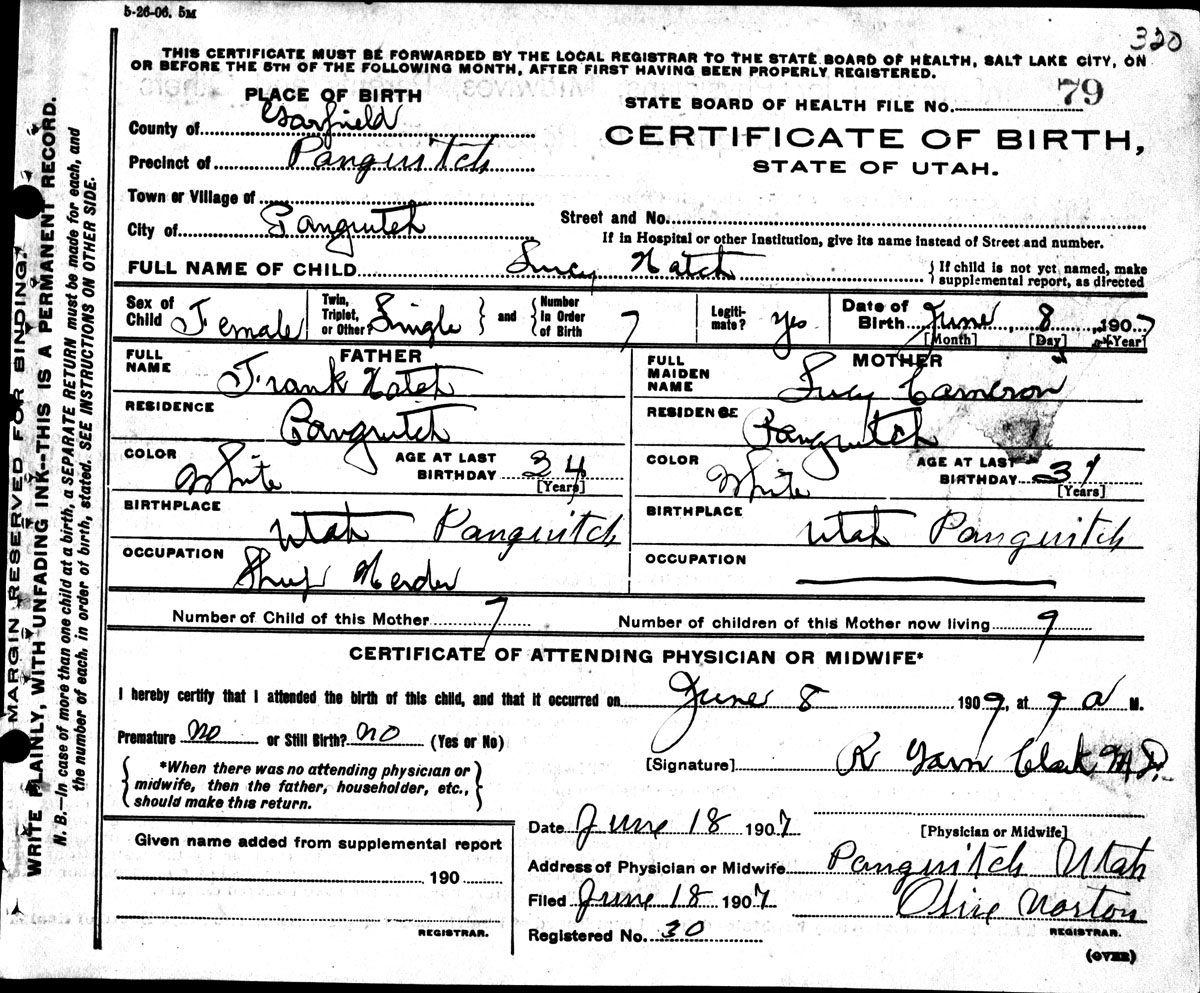 5-26-06. 5M
320
THIS CERTIFICATE MUST BE FORWARDED BY THE LOCAL REGISTRAR TO THE STATE BOARD OF HEALTH, SALT LAKE CITY, ON
OR BEFORE THE 5TH OF THE FOLLOWING MONTH, AFTER FIRST HAVING BEEN PROPERLY REGISTERED.
MARGIN RESERVED FOR BINDING.
WRITE PLAINLY, WITH UNFADING INK--THIS IS A PERMANENT RECORD.
N. B.—In case of more than one child at a birth, a SEPARATE RETURN must be made for each, and
the number of each, in order of birth, stated. SEE INSTRUCTIONS ON OTHER SIDE.
PLACE OF BIRTH
County of Garfield
Precinct of Panguitch
Town or Village of
City of Panguitch
STATE BOARD OF HEALTH FILE NO. 79
CERTIFICATE OF BIRTH,
STATE OF UTAH.
Street and No.
If in Hospital or other Institution, give its name instead of Street and number.
FULL NAME OF CHILD Lucy Hatch { If child is not yet named, make
supplemental report, as directed
Sex of Child Female
Twin, Triplet, or Other? Single } and { Number In Order of Birth 7
Legiti- mate? yes
Date of Birth June 8 1907
[Month] [Day] [Year]
FATHER
FULL NAME Frank Hatch
RESIDENCE Panguitch
COLOR White AGE AT LAST BIRTHDAY 34 [Years]
BIRTHPLACE Utah Panguitch
OCCUPATION Sheep Herder
MOTHER
FULL MAIDEN NAME Lucy Cameron
RESIDENCE Panguitch
COLOR White AGE AT LAST BIRTHDAY 31 [Years]
BIRTHPLACE Utah Panguitch
OCCUPATION
Number of Child of this Mother 7 Number of children of this Mother now living 9
CERTIFICATE OF ATTENDING PHYSICIAN OR MIDWIFE*
I hereby certify that I attended the birth of this child, and that it occurred on June 8 1909, at 9 a M.
Premature no or Still Birth? no (Yes or No)
{ *When there was no attending physician or
midwife, then the father, householder, etc.,
should make this return. }
[Signature] R Garn Clark M.D.
[Physician or Midwife]
Date June 18 1907
Address of Physician or Midwife Panguitch Utah
Filed June 18 1907 Olive Norton
REGISTRAR.
Registered No. 30
(OVER)
Given name added from supplemental report
190
REGISTRAR.